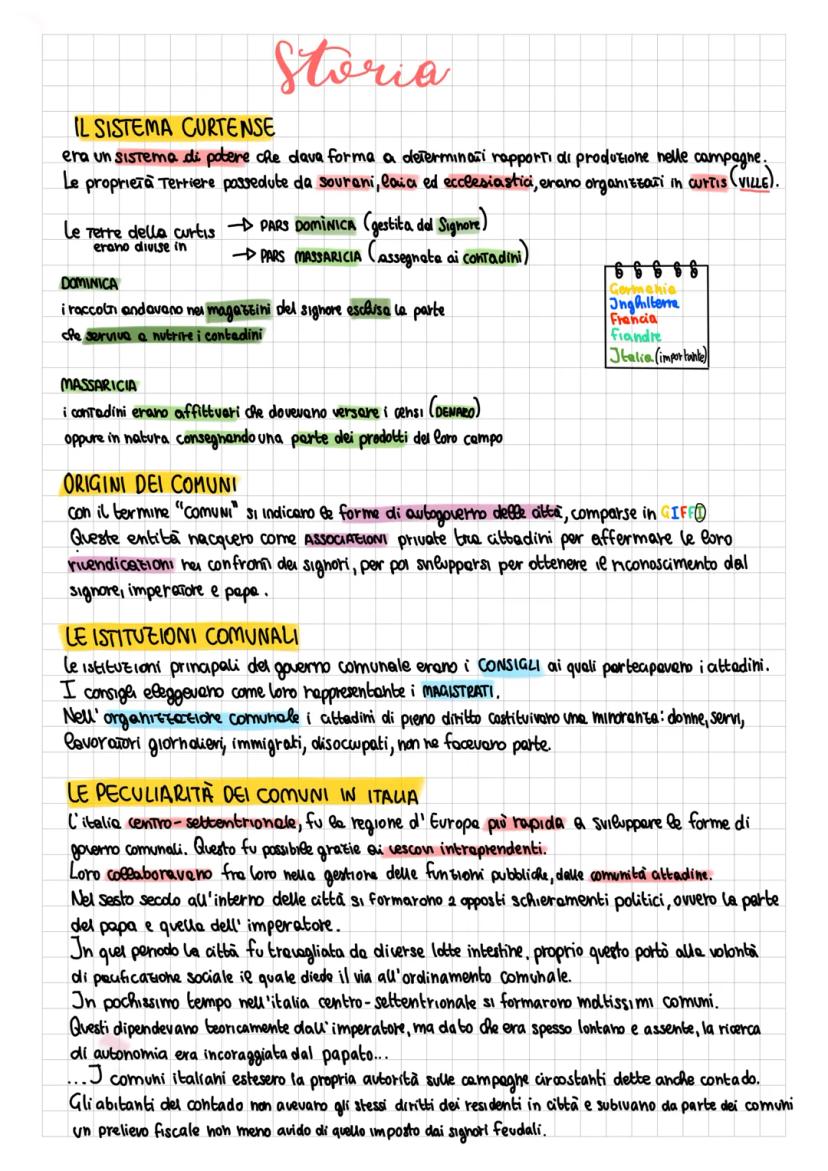 Storia
IL SISTEMA CURTENSE
era un sistema di potere che dava forma a determinati rapporti di produzione nelle campagne.
Le proprietà terriere possedute da sovrani, laici ed ecclesiastici, erano organizzati in curtis (VILLE).
Le terre della curtis → PARS DOMINICA (gestita dal Signore)
erano divise in
→ PARS MASSARICIA (assegnata ai contadini)
DOMINICA
i raccolti andavano nei magazzini del signore esclusa la parte
che serviva a nutrire i contadini
Germania
Inghilterra
Francia
fiandre
Italia (importante)
MASSARICIA
i contadini erano affittuari che dovevano versare i censi (DENARO)
oppure in natura consegnando una parte dei prodotti del loro campo
ORIGINI DEI COMUNI
con il termine "COMUNI" si indicano le forme di autogoverno delle città, comparse in GIFFI
Queste entità nacquero come ASSOCIAZIONI private tra cittadini per affermare le loro
rivendicazioni nei confronti dei signori, per poi svilupparsi per ottenere il riconoscimento dal
signore, imperatore e papa.
LE ISTITUZIONI COMUNALI
Le istituzioni principali del governo comunale erano i CONSIGLI ai quali partecipavano i cittadini.
I consigli eleggevano come loro rappresentante i MAGISTRATI.
Nell'organizzazione comunale i cittadini di pieno diritto costituivano una minoranza: donne, servi,
lavoratori giornalieri, immigrati, disoccupati, non ne facevano parte.
LE PECULIARITÀ DEI COMUNI IN ITALIA
L'italia centro-settentrionale, fu la regione d'Europa più rapida a sviluppare le forme di
governo comunali. Questo fu possibile grazie ai vescovi intraprendenti.
Loro collaboravano fra loro nella gestione delle funzioni pubbliche, dalle comunità cittadine.
Nel sesto secolo all'interno delle città si formarono 2 opposti schieramenti politici, ovvero la parte
del papa e quella dell'imperatore.
In quel periodo la città fu travagliata da diverse lotte intestine, proprio questo portò alla volontà
di pacificazione sociale il quale diede il via all'ordinamento comunale.
In pochissimo tempo nell'italia centro-settentrionale si formarono moltissimi comuni.
Questi dipendevano teoricamente dall'imperatore, ma dato che era spesso lontano e assente, la ricerca
di autonomia era incoraggiata dal papato...
...I comuni italiani estesero la propria autorità sulle campagne circostanti dette anche contado.
Gli abitanti del contado non avevano gli stessi diritti dei residenti in città e subivano da parte dei comuni
un prelievo fiscale non meno avido di quello imposto dai signori feudali.